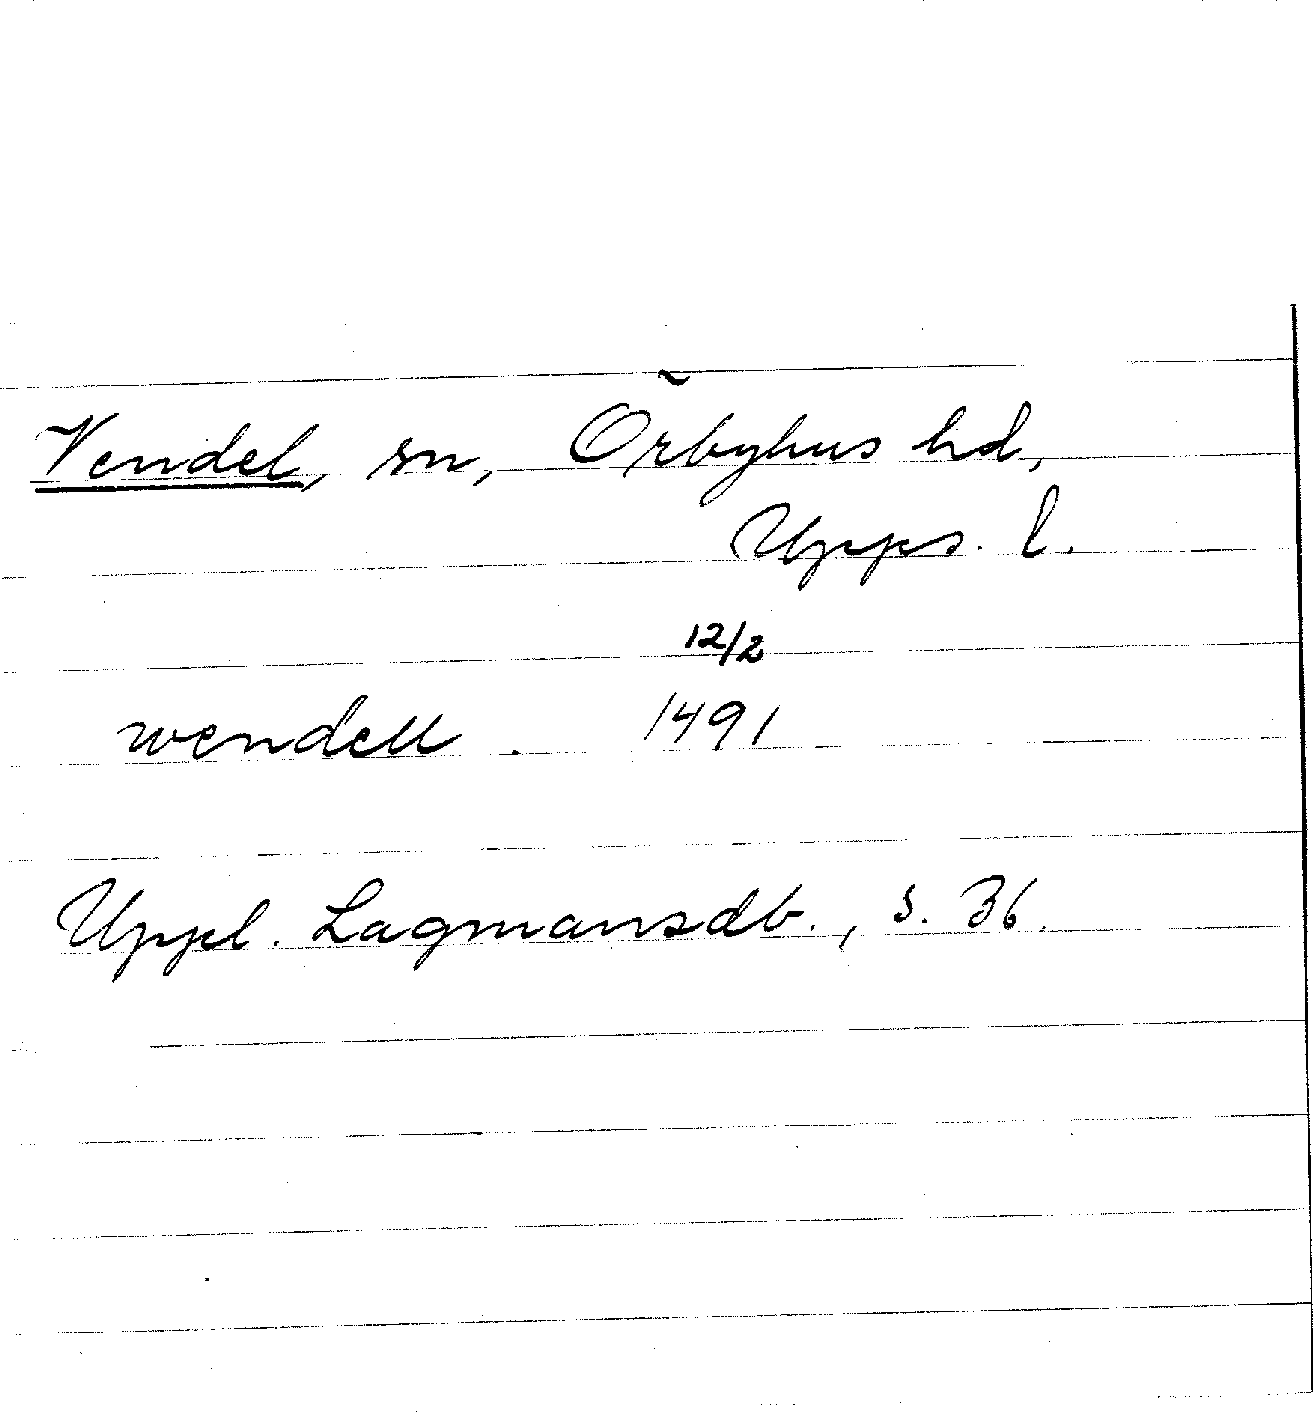 Vendel, sn, Örbyhus hd,
Upps. l.
12/2
wendell . 1491
Uppl. Lagmansdb., s. 36.